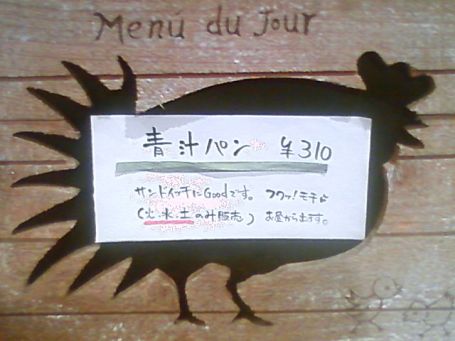 Menú du Jour
青汁パン ¥310
サンドイッチにGoodです。 フワッ!モチ☆
(火・水・土のみ販売) お昼から出ます。